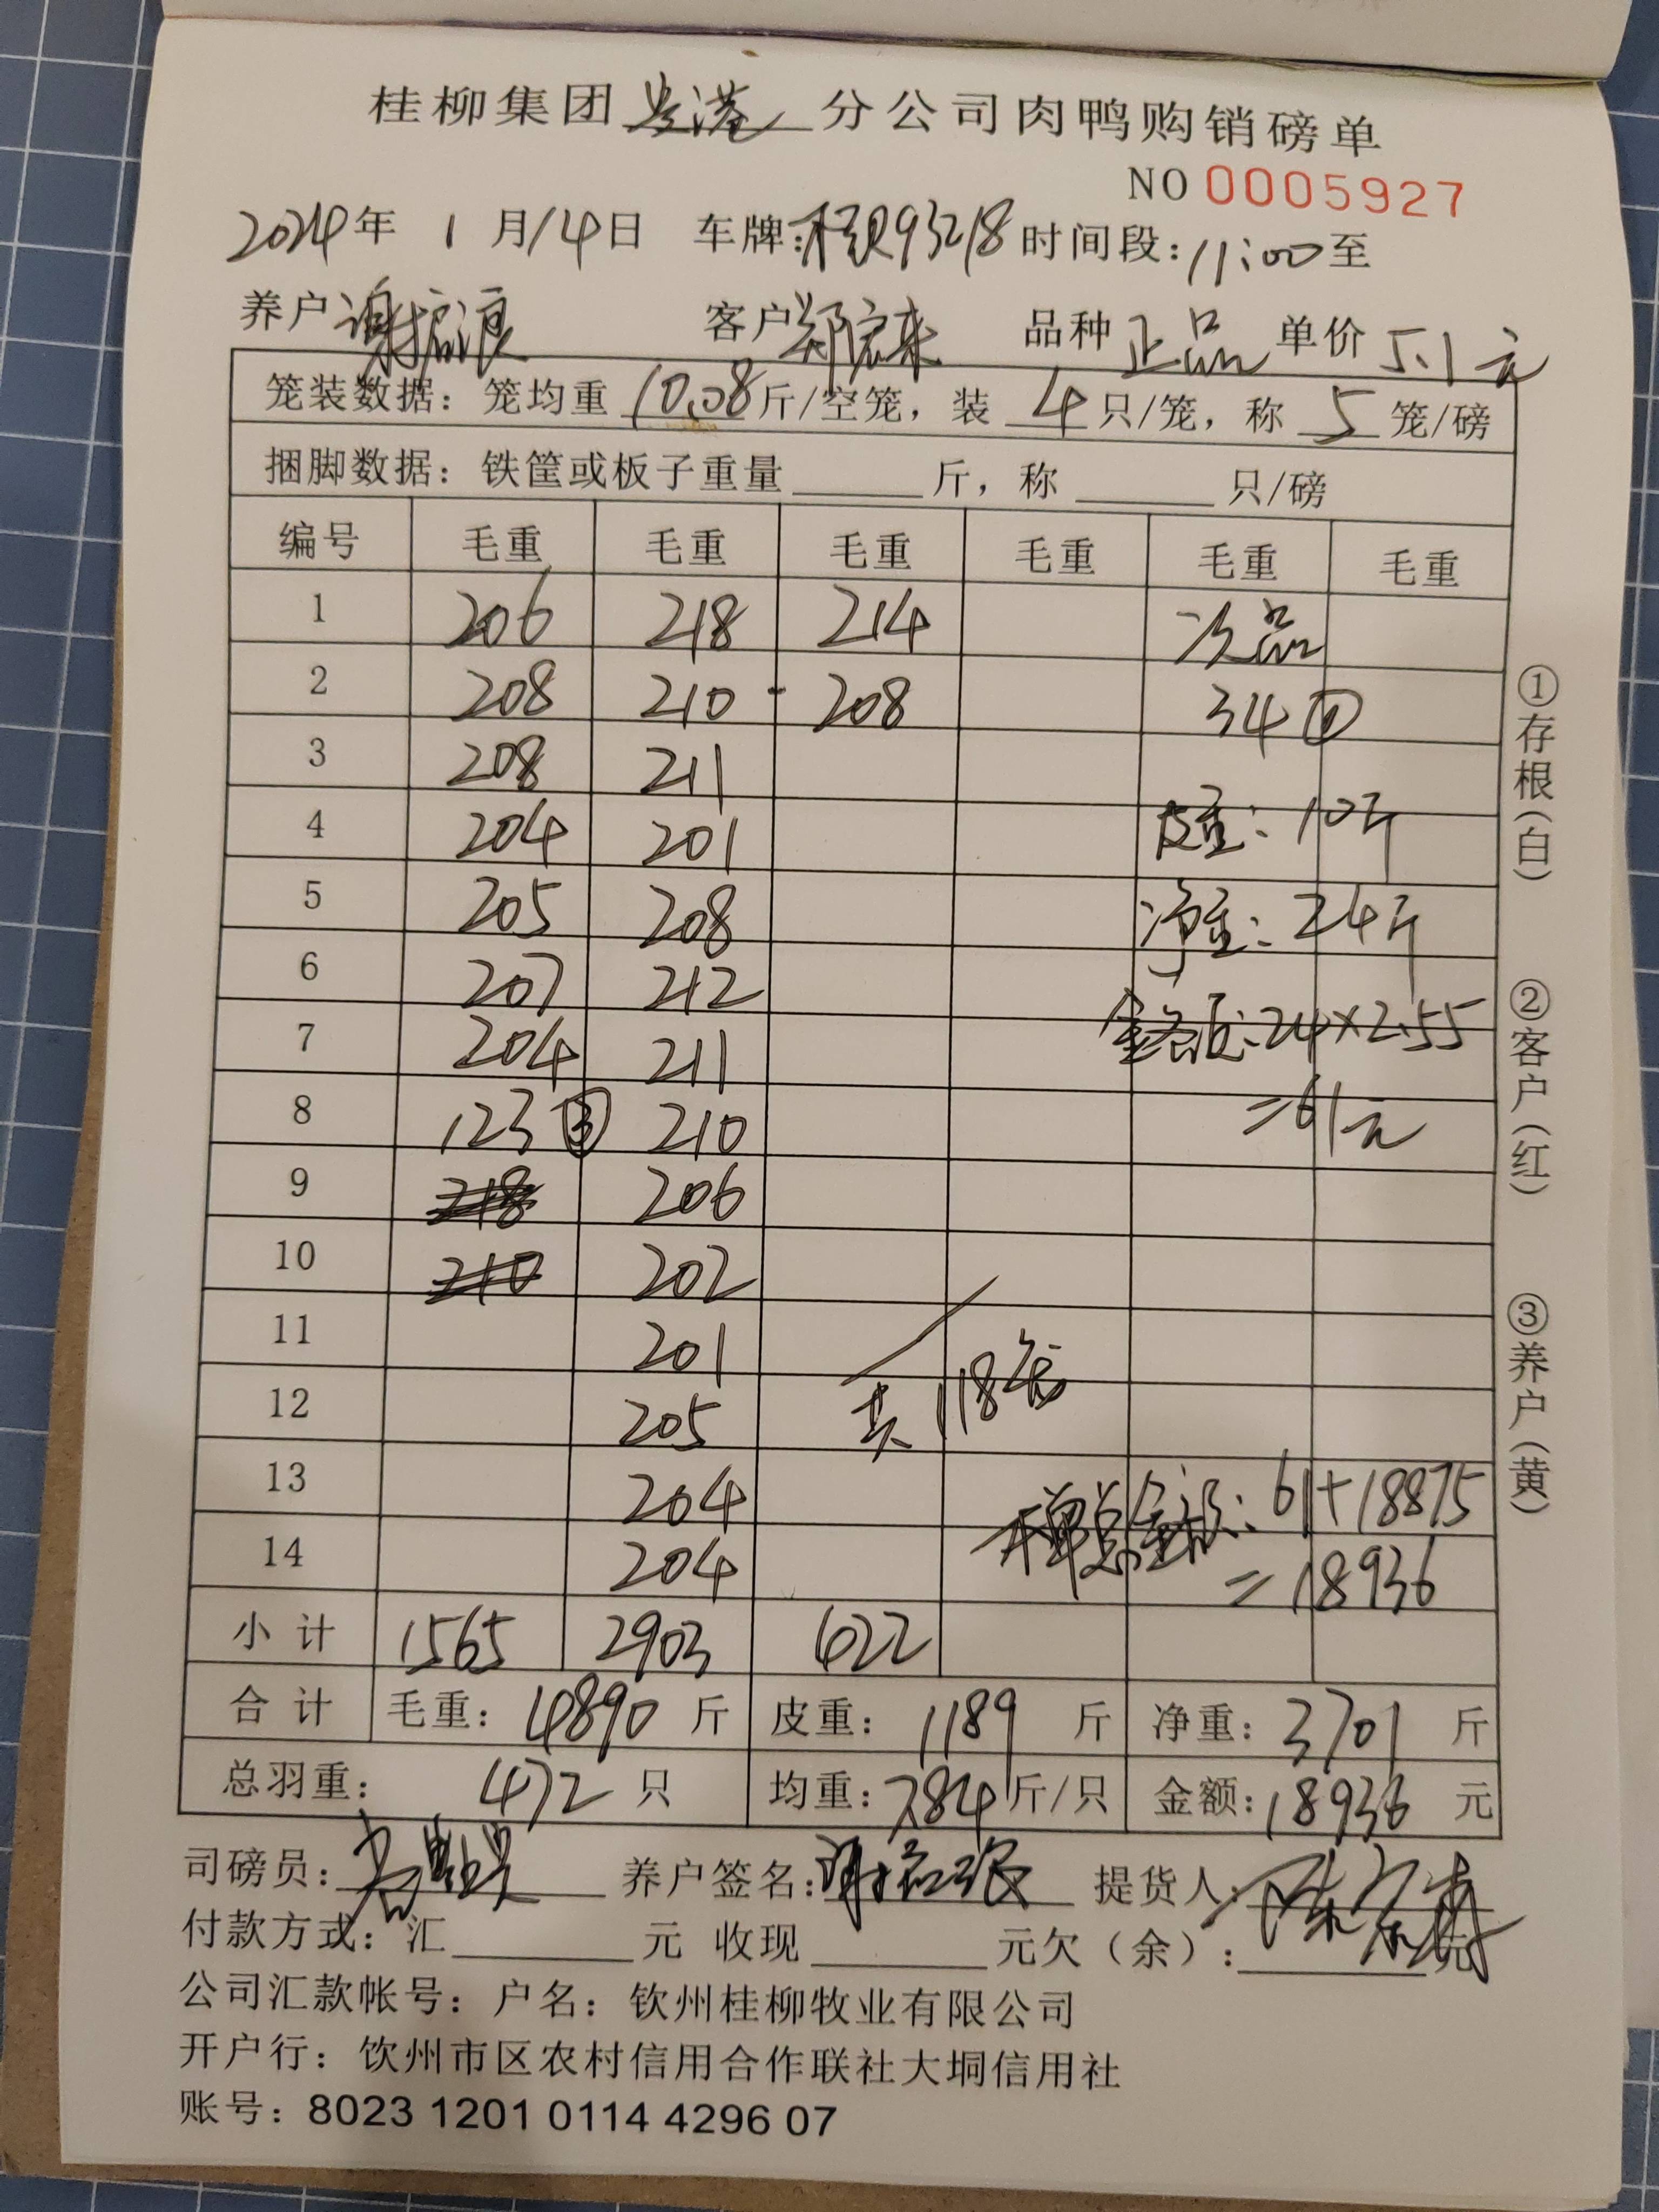 桂柳集团贵港分公司肉鸭购销磅单
NO 0005927
2024年 1月14日 车牌:桂R93218 时间段:11:00至
养户 谢 客户 郑宏来 品种 正品 单价 5.1元
笼装数据: 笼均重 10.08 斤/空笼, 装 4 只/笼, 称 5 笼/磅
捆脚数据: 铁筐或板子重量 斤, 称 只/磅
编号 毛重 毛重 毛重 毛重 毛重 毛重
1 206 218 214 次品
2 208 210 208 34 ①
3 208 211
4 204 201 皮重: 10斤
5 205 208 净重: 24斤
6 207 212
7 204 211 金额: 24×2.55
8 123 ③ 210 =61元
9 218 206
10 210 202
11 201
12 205 共118笼
13 204 本单总金额: 61+18875
14 204 =18936
小计 1565 2903 422
合计 毛重: 4890 斤 皮重: 1189 斤 净重: 3701 斤
总羽重: 472 只 均重: 7.84 斤/只 金额: 18936 元
司磅员: 养户签名: 提货人:
付款方式: 汇 元 收现 元欠(余): 元
公司汇款帐号: 户名: 钦州桂柳牧业有限公司
开户行: 钦州市区农村信用合作联社大垌信用社
账号: 8023 1201 0114 4296 07
①存根(白)
②客户(红)
③养户(黄)